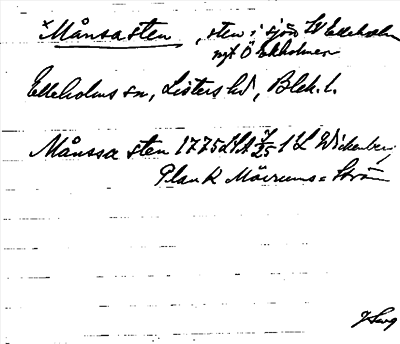 × Månsasten, sten i sjön V Elleholm
nyt Ö Ekholmen
Elleholms sn, Listers hd, Blek. l.
Månssa sten 1775 LSA 7/25 1 L Wickenberg
Plan k Mörrums = Ström